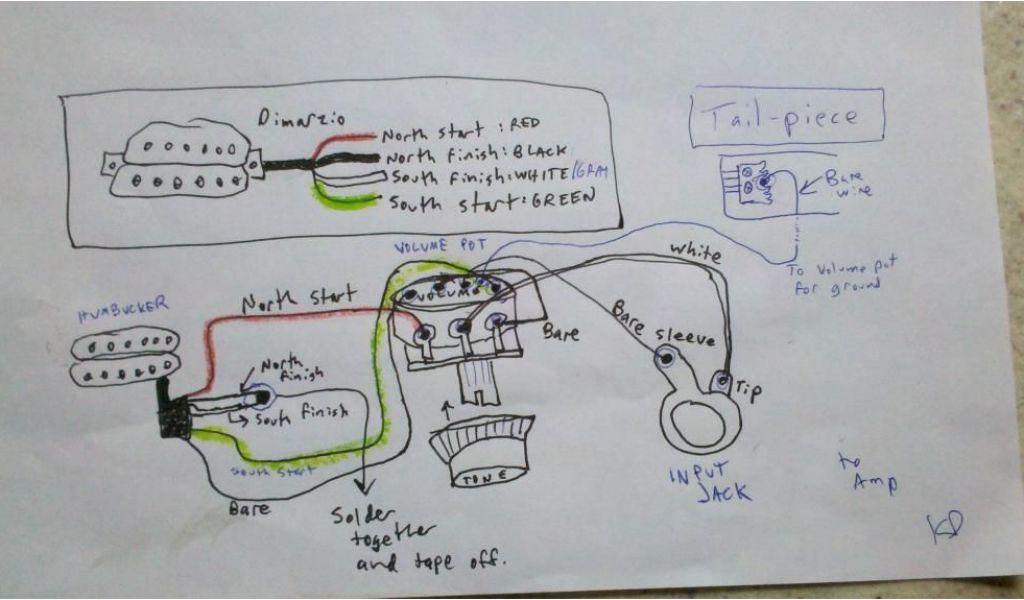 Dimarzio
North start : RED
North finish: BLACK
South finish: WHITE/GRAY
South start: GREEN
Tail-piece
Bare
wire
To Volume pot
for ground
VOLUME POT
VOLUME
white
HUMBUCKER
North Start
Bare
Bare sleeve
Tip
North
finish
South finish
South Start
Bare
TONE
INPUT
JACK
to
Amp
Solder
together
and tape off.